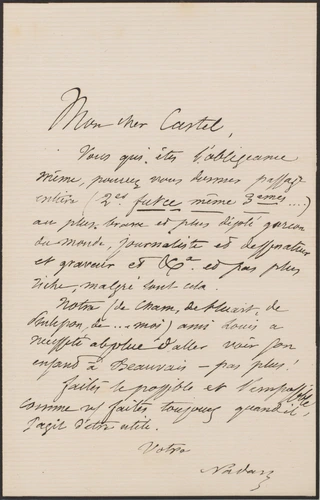 Mon cher Castel,
Vous qui êtes l'obligeance
même, pouvez vous donner passage
entier (2es fut-ce même 3èmes....)
au plus brave et plus digne garçon
du monde, journaliste et dessinateur
et graveur et &a et pas plus
riche, malgré tout cela.
Notre (de Cham, de
de ... moi) ami Louis a
nécessité absolue d'aller voir son
enfant à Beauvais — pas plus!
faites le possible et l'impossible,
comme vs faites toujours quand il
s'agit d'être utile.
Votre
Nadar